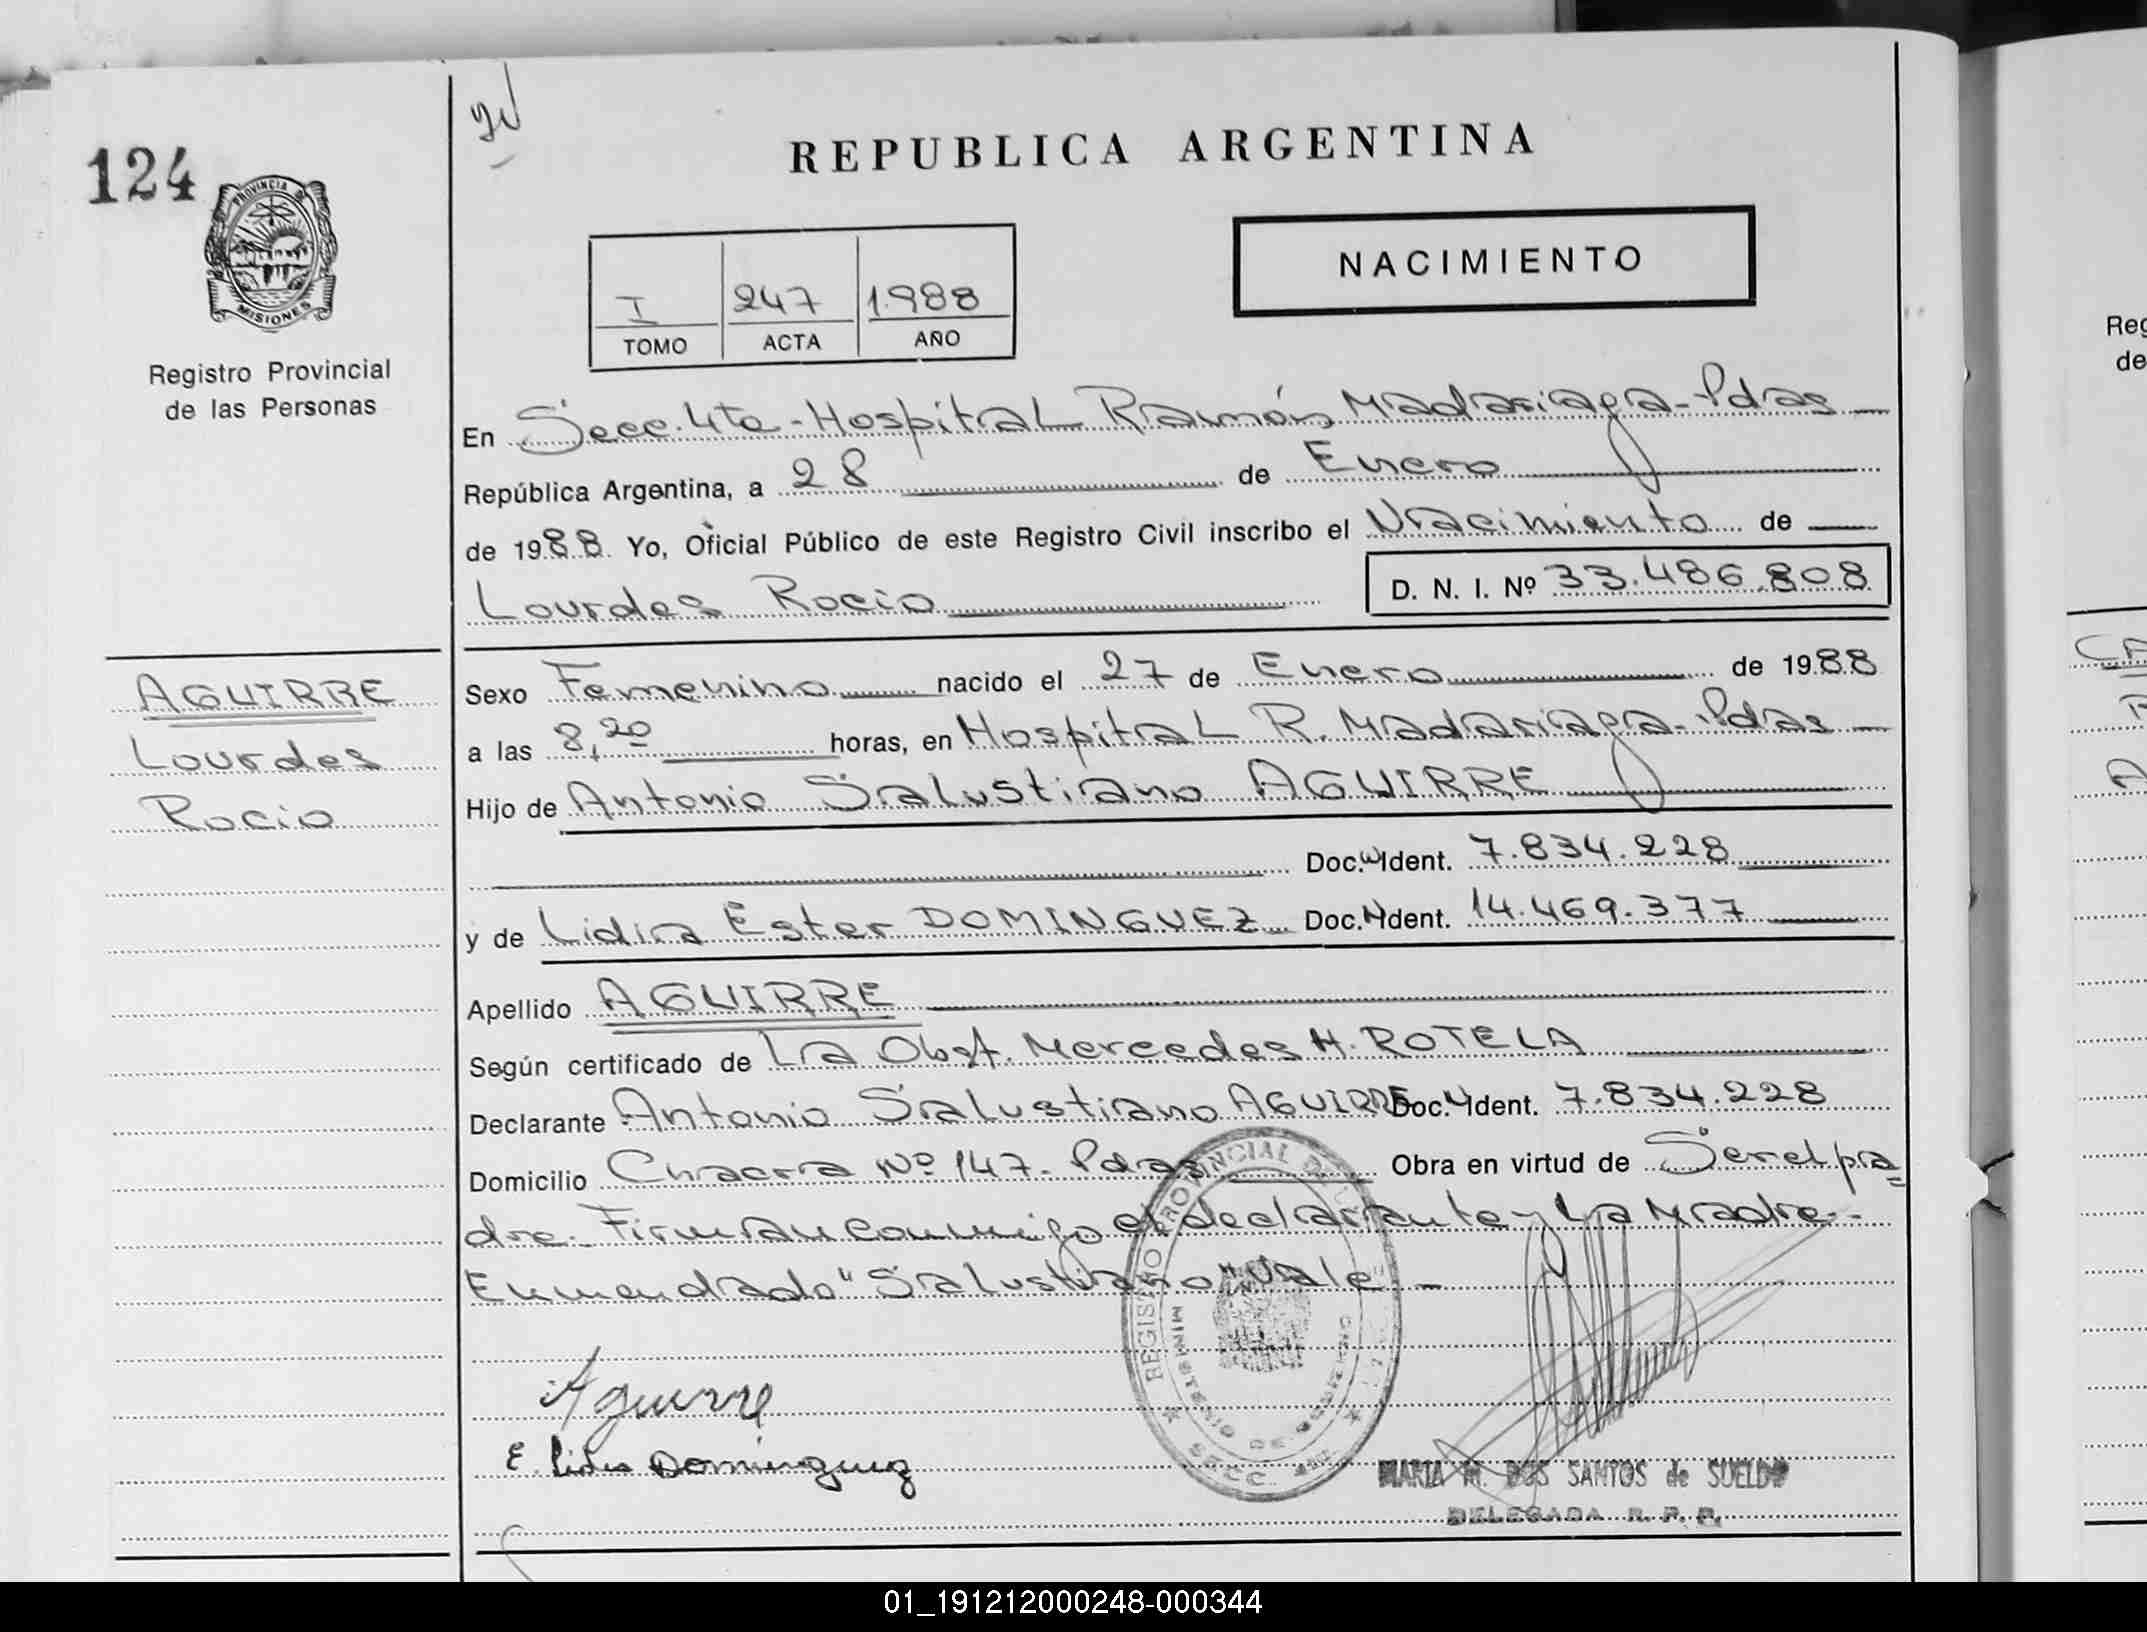 124
REPUBLICA ARGENTINA
PROVINCIA DE
MISIONES
Registro Provincial
de las Personas
I 247 1.988
TOMO ACTA AÑO
NACIMIENTO
En Secc. 4ta - Hospital Ramón Madariaga - Pdas
República Argentina, a 28 de Enero
de 1988 Yo, Oficial Público de este Registro Civil inscribo el Nacimiento de
Lourdes Rocio D. N. I. Nº 33.486.808
AGUIRRE
Lourdes
Rocio
Sexo Femenino nacido el 27 de Enero de 1988
a las 8,20 horas, en Hospital R. Madariaga - Pdas
Hijo de Antonio Salustiano AGUIRRE
Doc. Ident. 7.834.228
y de Lidia Ester DOMINGUEZ Doc. Ident. 14.469.377
Apellido AGUIRRE
Según certificado de La Obst. Mercedes H. ROTELA
Declarante Antonio Salustiano AGUIRRE Doc. Ident. 7.834.228
Domicilio Chacra Nº 147 - Pdas Obra en virtud de Ser el pa=
dre. - Firman conmigo el declarante y La Madre -
Enmendado "Salustiano" Vale. -
Aguirre
E. Lidia Dominguez
REGISTRO PROVINCIAL DE
MINISTERIO DE GOBIERNO
SECC. 4ta
MARIA M. DOS SANTOS de SUELDO
DELEGADA R. P. P.
Reg
de
CA
R
A
01_191212000248-000344